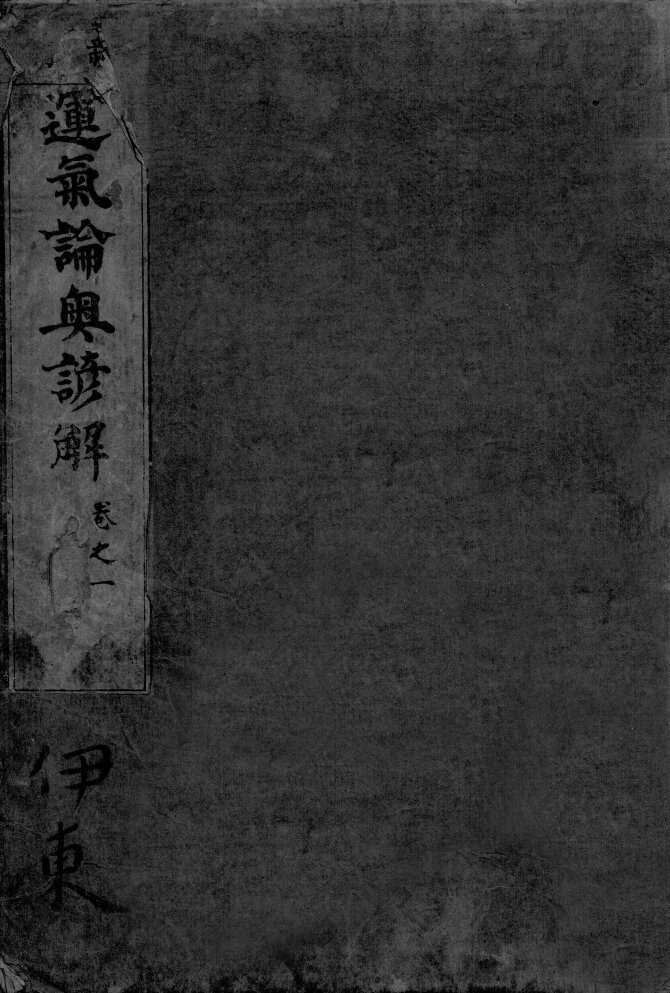 運氣論奥諺解
卷之一
伊東